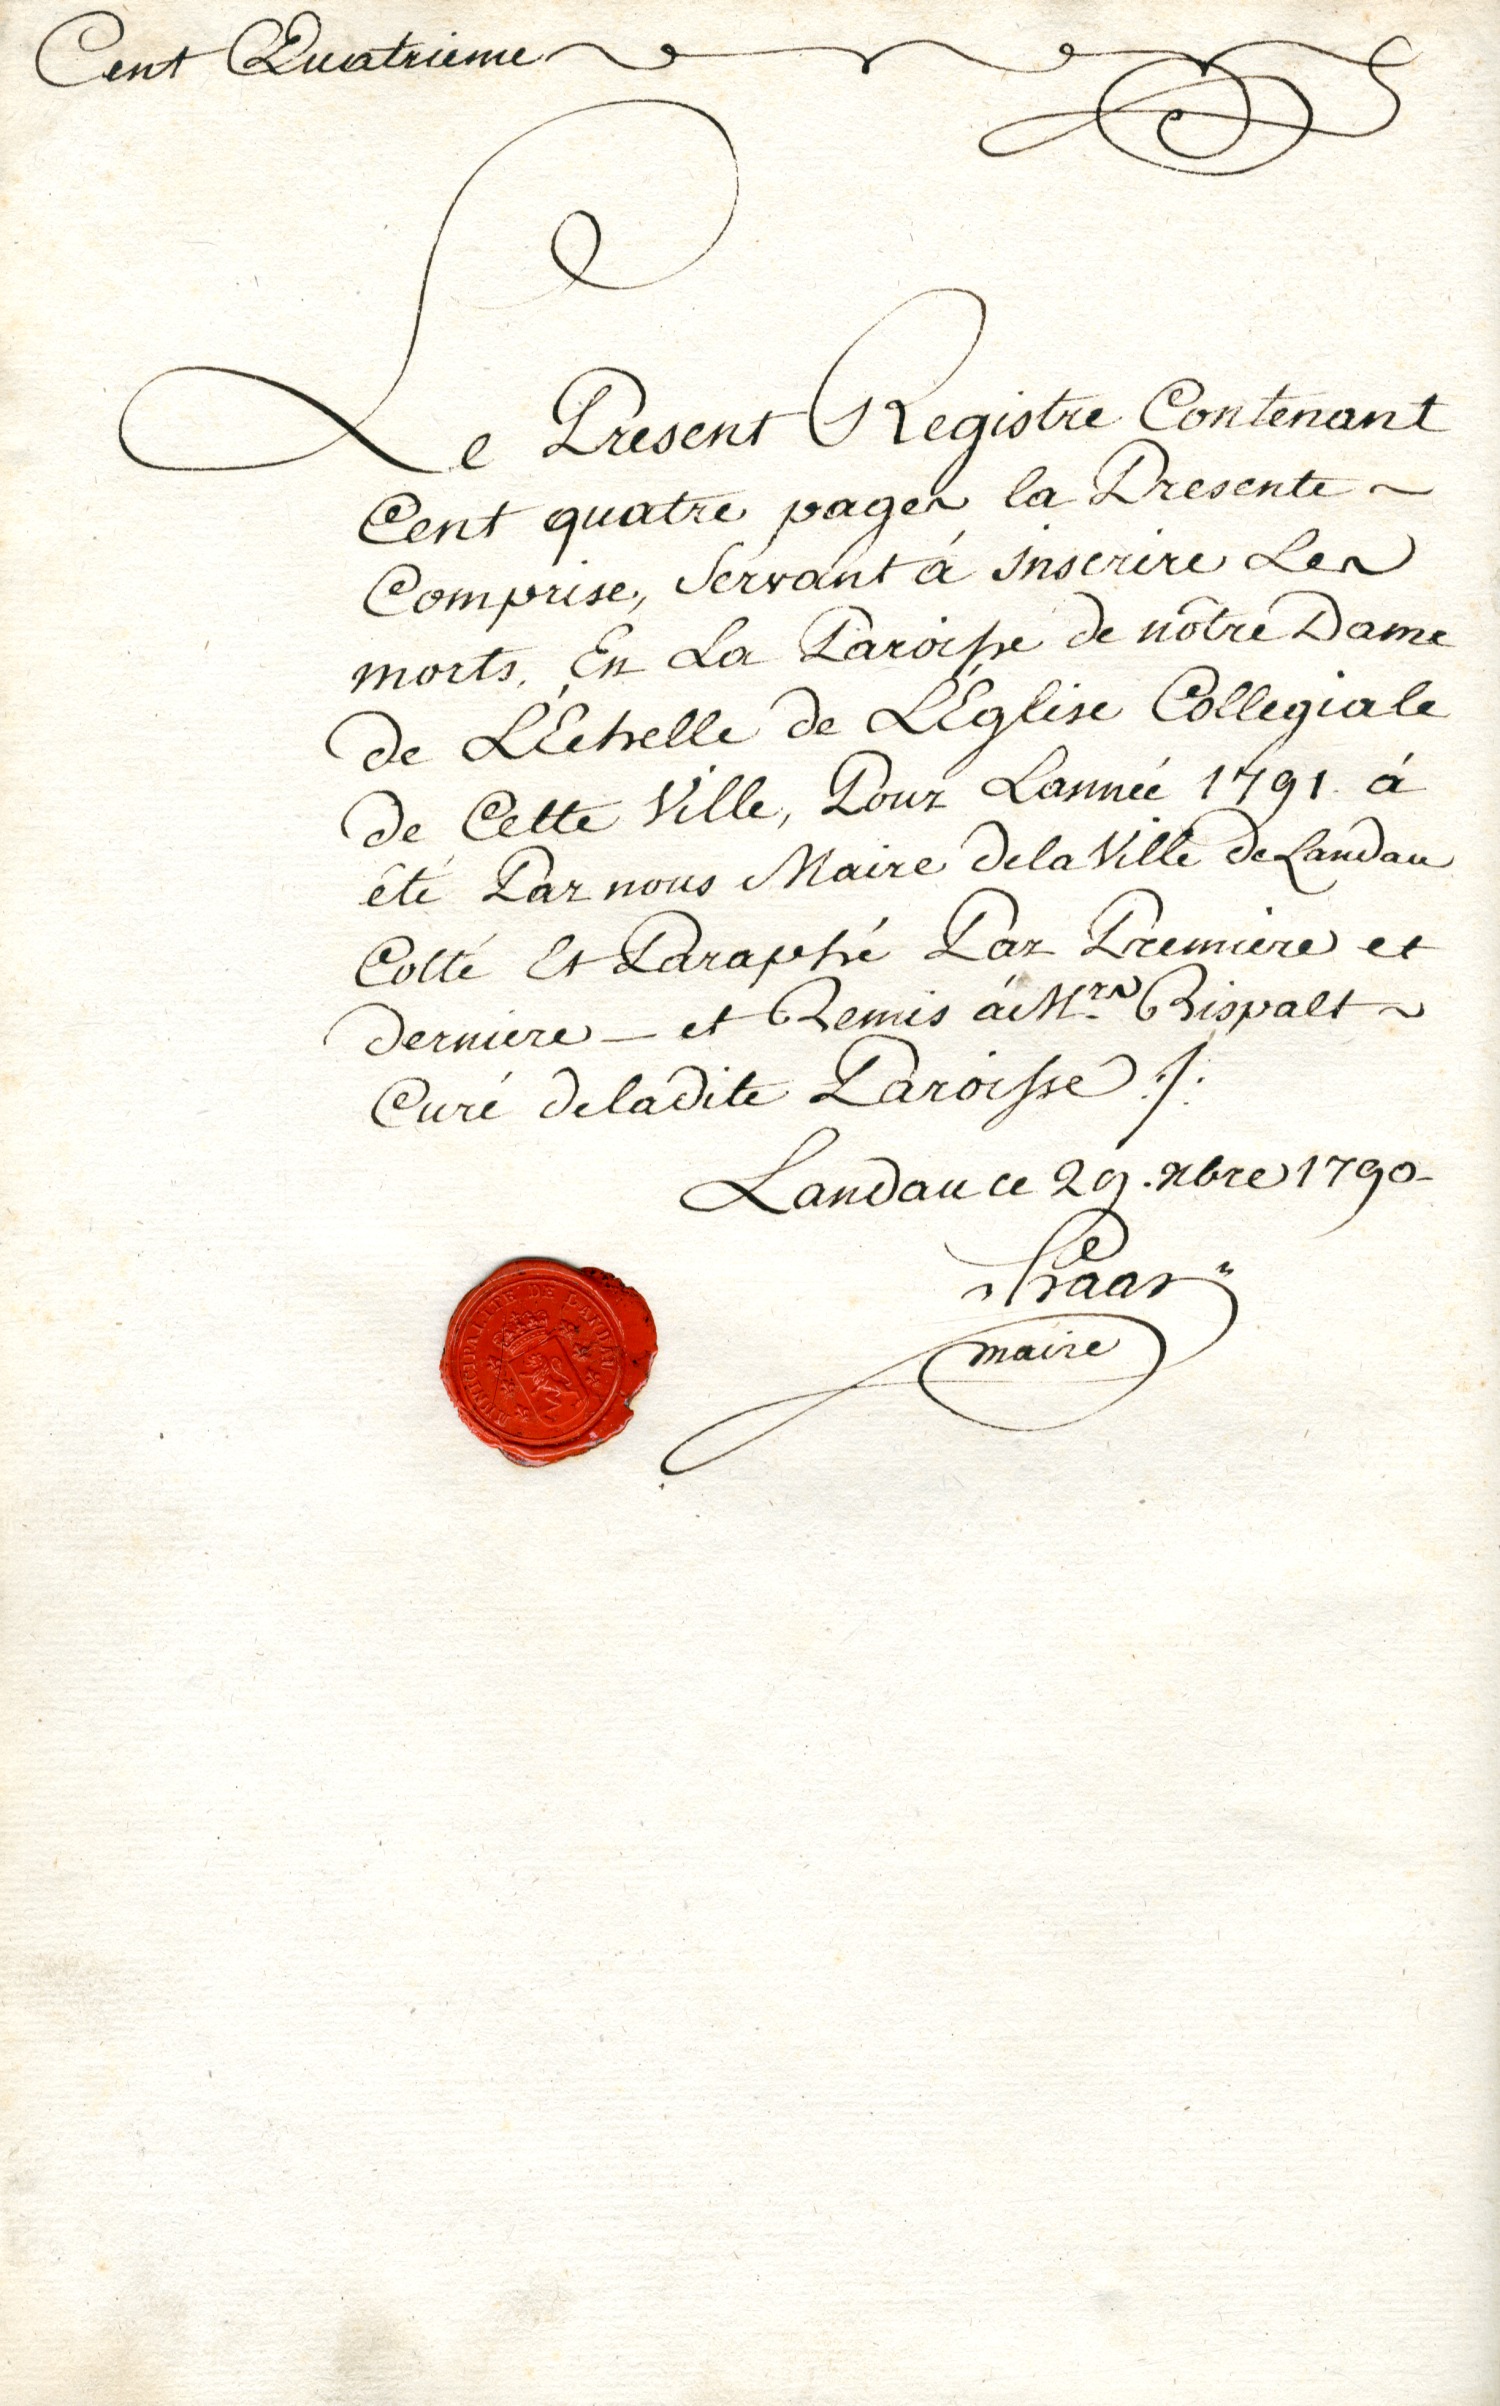 Cent Quatrieme
Le Present Registre Contenant
Cent quatre pages la Presente
Comprise, Servant á inscrire Les
morts, En La Paroisse de nôtre Dame
de L'Échelle de L'Église Collegiale
de Cette Ville, Pour Lannée 1791 á
été Par nous Maire dela Ville de Landau
Cotté Et Paraphé Par Premiere et
derniere - et Remis á Mrs
Curé deladite Paroisse ./.
Landau ce 29. xbre 1790
maire
MUNICIPALITE DE LANDAU